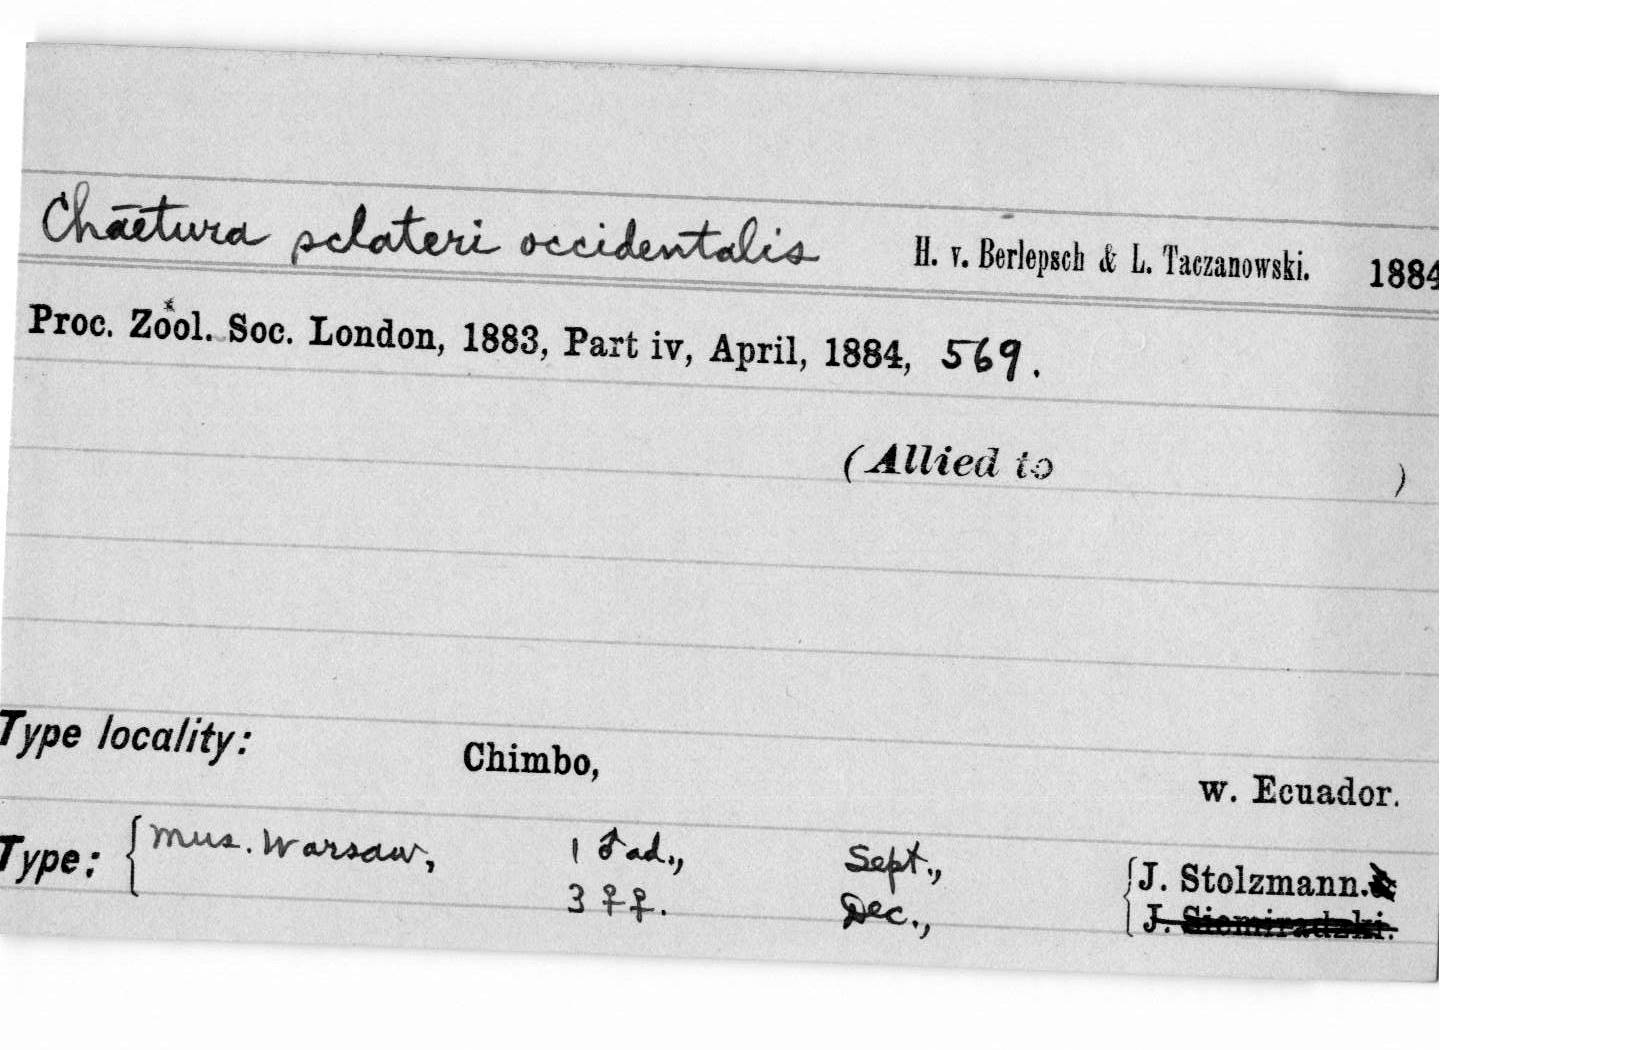 Chāetura sclateri occidentalis H. v. Berlepsch & L. Taczanowski. 1884
Proc. Zool. Soc. London, 1883, Part iv, April, 1884, 569.
(Allied to )
Type locality: Chimbo, w. Ecuador.
Type: { Mus. Warsaw, 1 ♂ ad., Sept., { J. Stolzmann.
3 ♀♀. Dec., J. Siemiradzki.